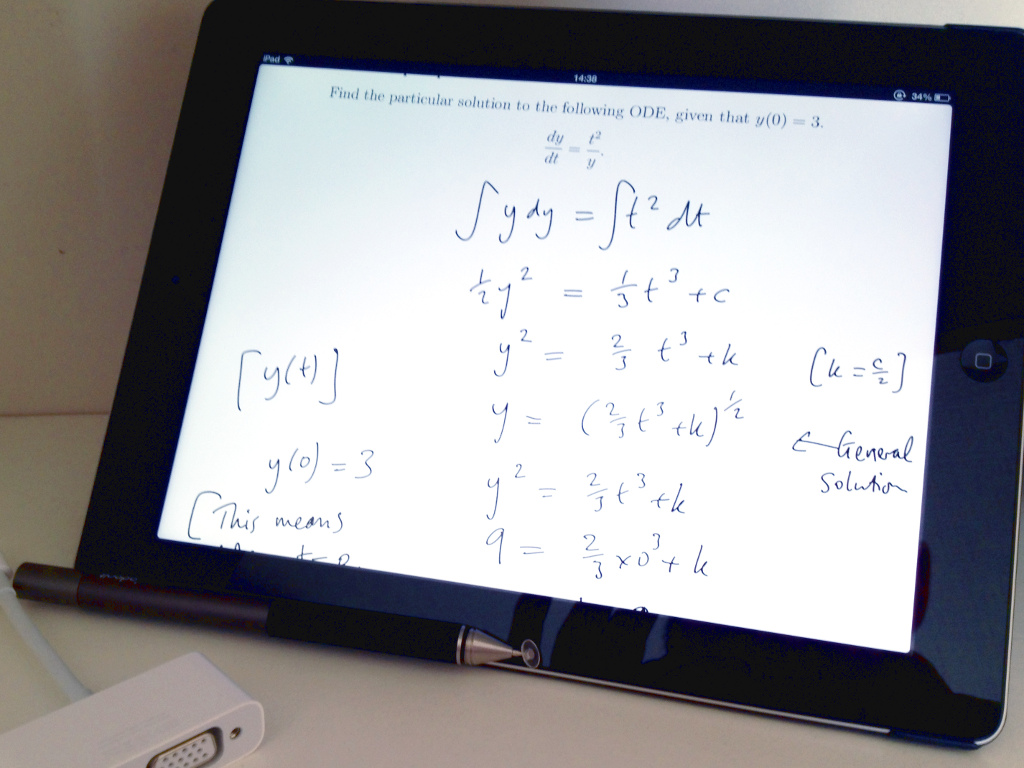 iPad
14:38
34%
Find the particular solution to the following ODE, given that y(0) = 3.
dy/dt = t²/y.
∫ y dy = ∫ t² dt
½y² = ⅓t³ + c
y² = ⅔ t³ + k [k = c/2]
[y(t)]
y = (⅔t³ + k)^½
← General
Solution
y(0) = 3
y² = ⅔t³ + k
[This means
9 = ⅔ × 0³ + k